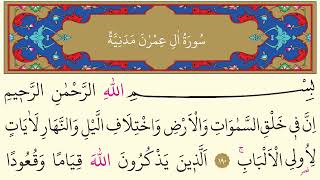 سُورَةُ اٰلِ عِمْرٰنَ مَدَنِيَّةٌ
بِسْمِ اللّٰهِ الرَّحْمٰنِ الرَّحِيمِ
اِنَّ فٖي خَلْقِ السَّمٰوَاتِ وَالْاَرْضِ وَاخْتِلَافِ الَّيْلِ وَالنَّهَارِ لَاٰيَاتٍ
لِاُولِي الْاَلْبَابِۚ ﴿١٩٠﴾ اَلَّذٖينَ يَذْكُرُونَ اللّٰهَ قِيَامًا وَقُعُودًا